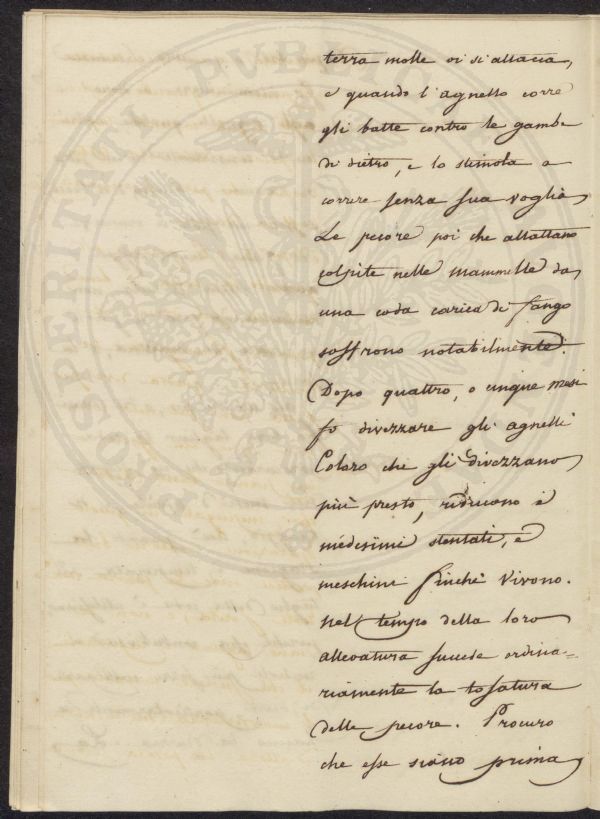 terra molle vi si attacca,
e quando l'agnello corre
gli batte contro le gambe
di dietro, e lo stimola a
correre senza sua voglia
Le pecore poi che allattano
colpite nelle mammelle da
una coda carica di fango
soffrono notabilmente.
Dopo quattro, o cinque mesi
fo divezzare gli agnelli
Coloro che gli divezzano
più presto, riducono i
medesimi stentati, e
meschini finchè vivono.
nel tempo della loro
allevatura succede ordina=
riamente la tosatura
delle pecore. Procuro
che esse siano prima
PROSPERITATI PUBLICAE